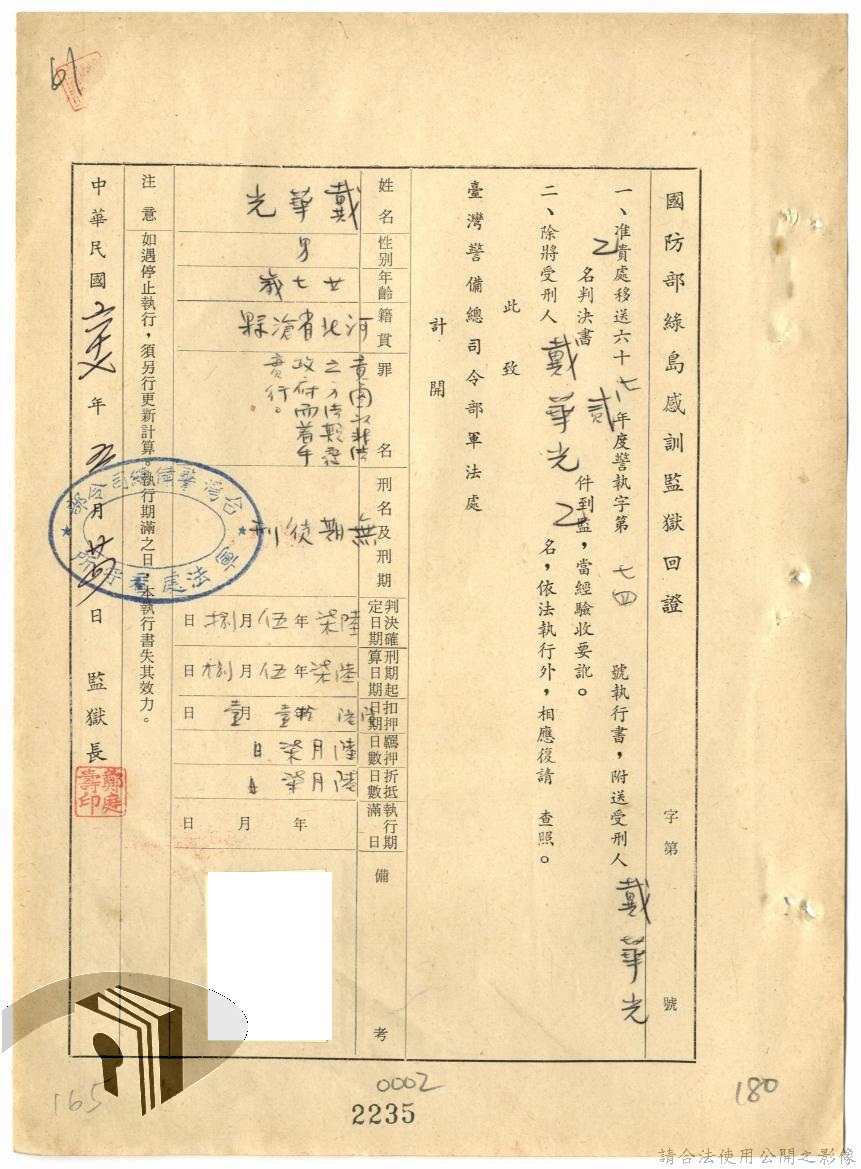 國防部綠島感訓監獄回證 字第 號
一、准貴處移送六十七年度警執字第 七四 號執行書,附送受刑人 戴華光
乙名判決書 貳 件到監,當經驗收要訛。
二、除將受刑人 戴華光 乙 名,依法執行外,相應復請 查照。
此致
臺灣警備總司令部軍法處
計開
姓名 戴華光
性別 男
年齡 廿七歲
籍貫 河北省滄縣
罪名 意圖以非法之方法顛覆政府而着手實行。
刑名及刑期 無期徒刑
判決確定日期 陸柒年伍月捌日
刑期起算日期 陸柒年伍月捌日
扣押日期 年 壹月 日
羈押日數 陸月柒日
折抵日數 陸月柒日
執行期滿日 年 月 日
備考
注意 如遇停止執行,須另行更新計算。執行期滿之日,本執行書失其效力。
中華民國 六十七 年 五 月 日 監獄長
鄭庭壽印
台灣警備總司令部
軍法處看守所
61
165
0002
2235
180
請合法使用公開之影像